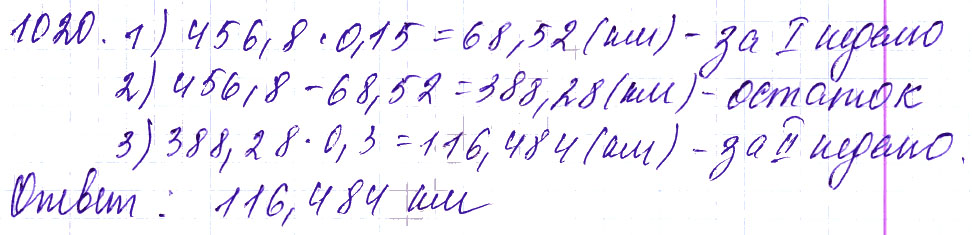 1020. 1) 456,8 · 0,15 = 68,52 (км) – за I неделю
2) 456,8 – 68,52 = 388,28 (км) – остаток
3) 388,28 · 0,3 = 116,484 (км) – за II неделю.
Ответ: 116,484 км